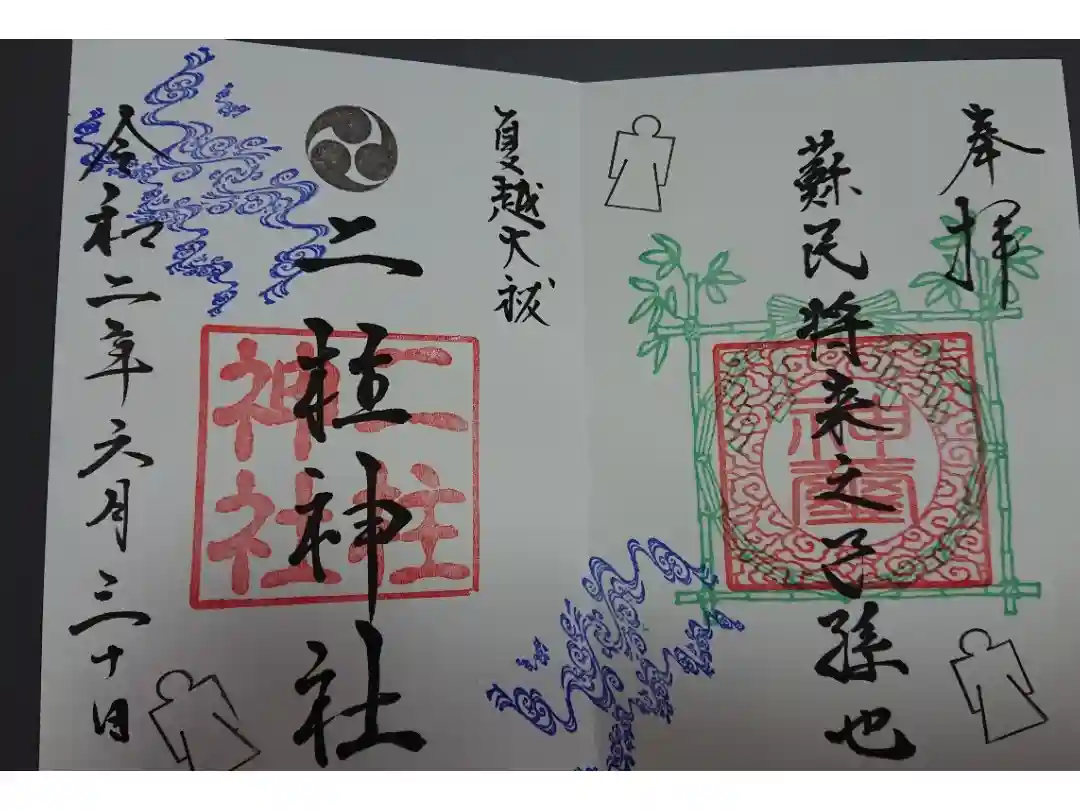 奉拝
蘇民将来之子孫也
神璽
夏越大祓
二柱神社
二柱神社
令和二年六月三十日